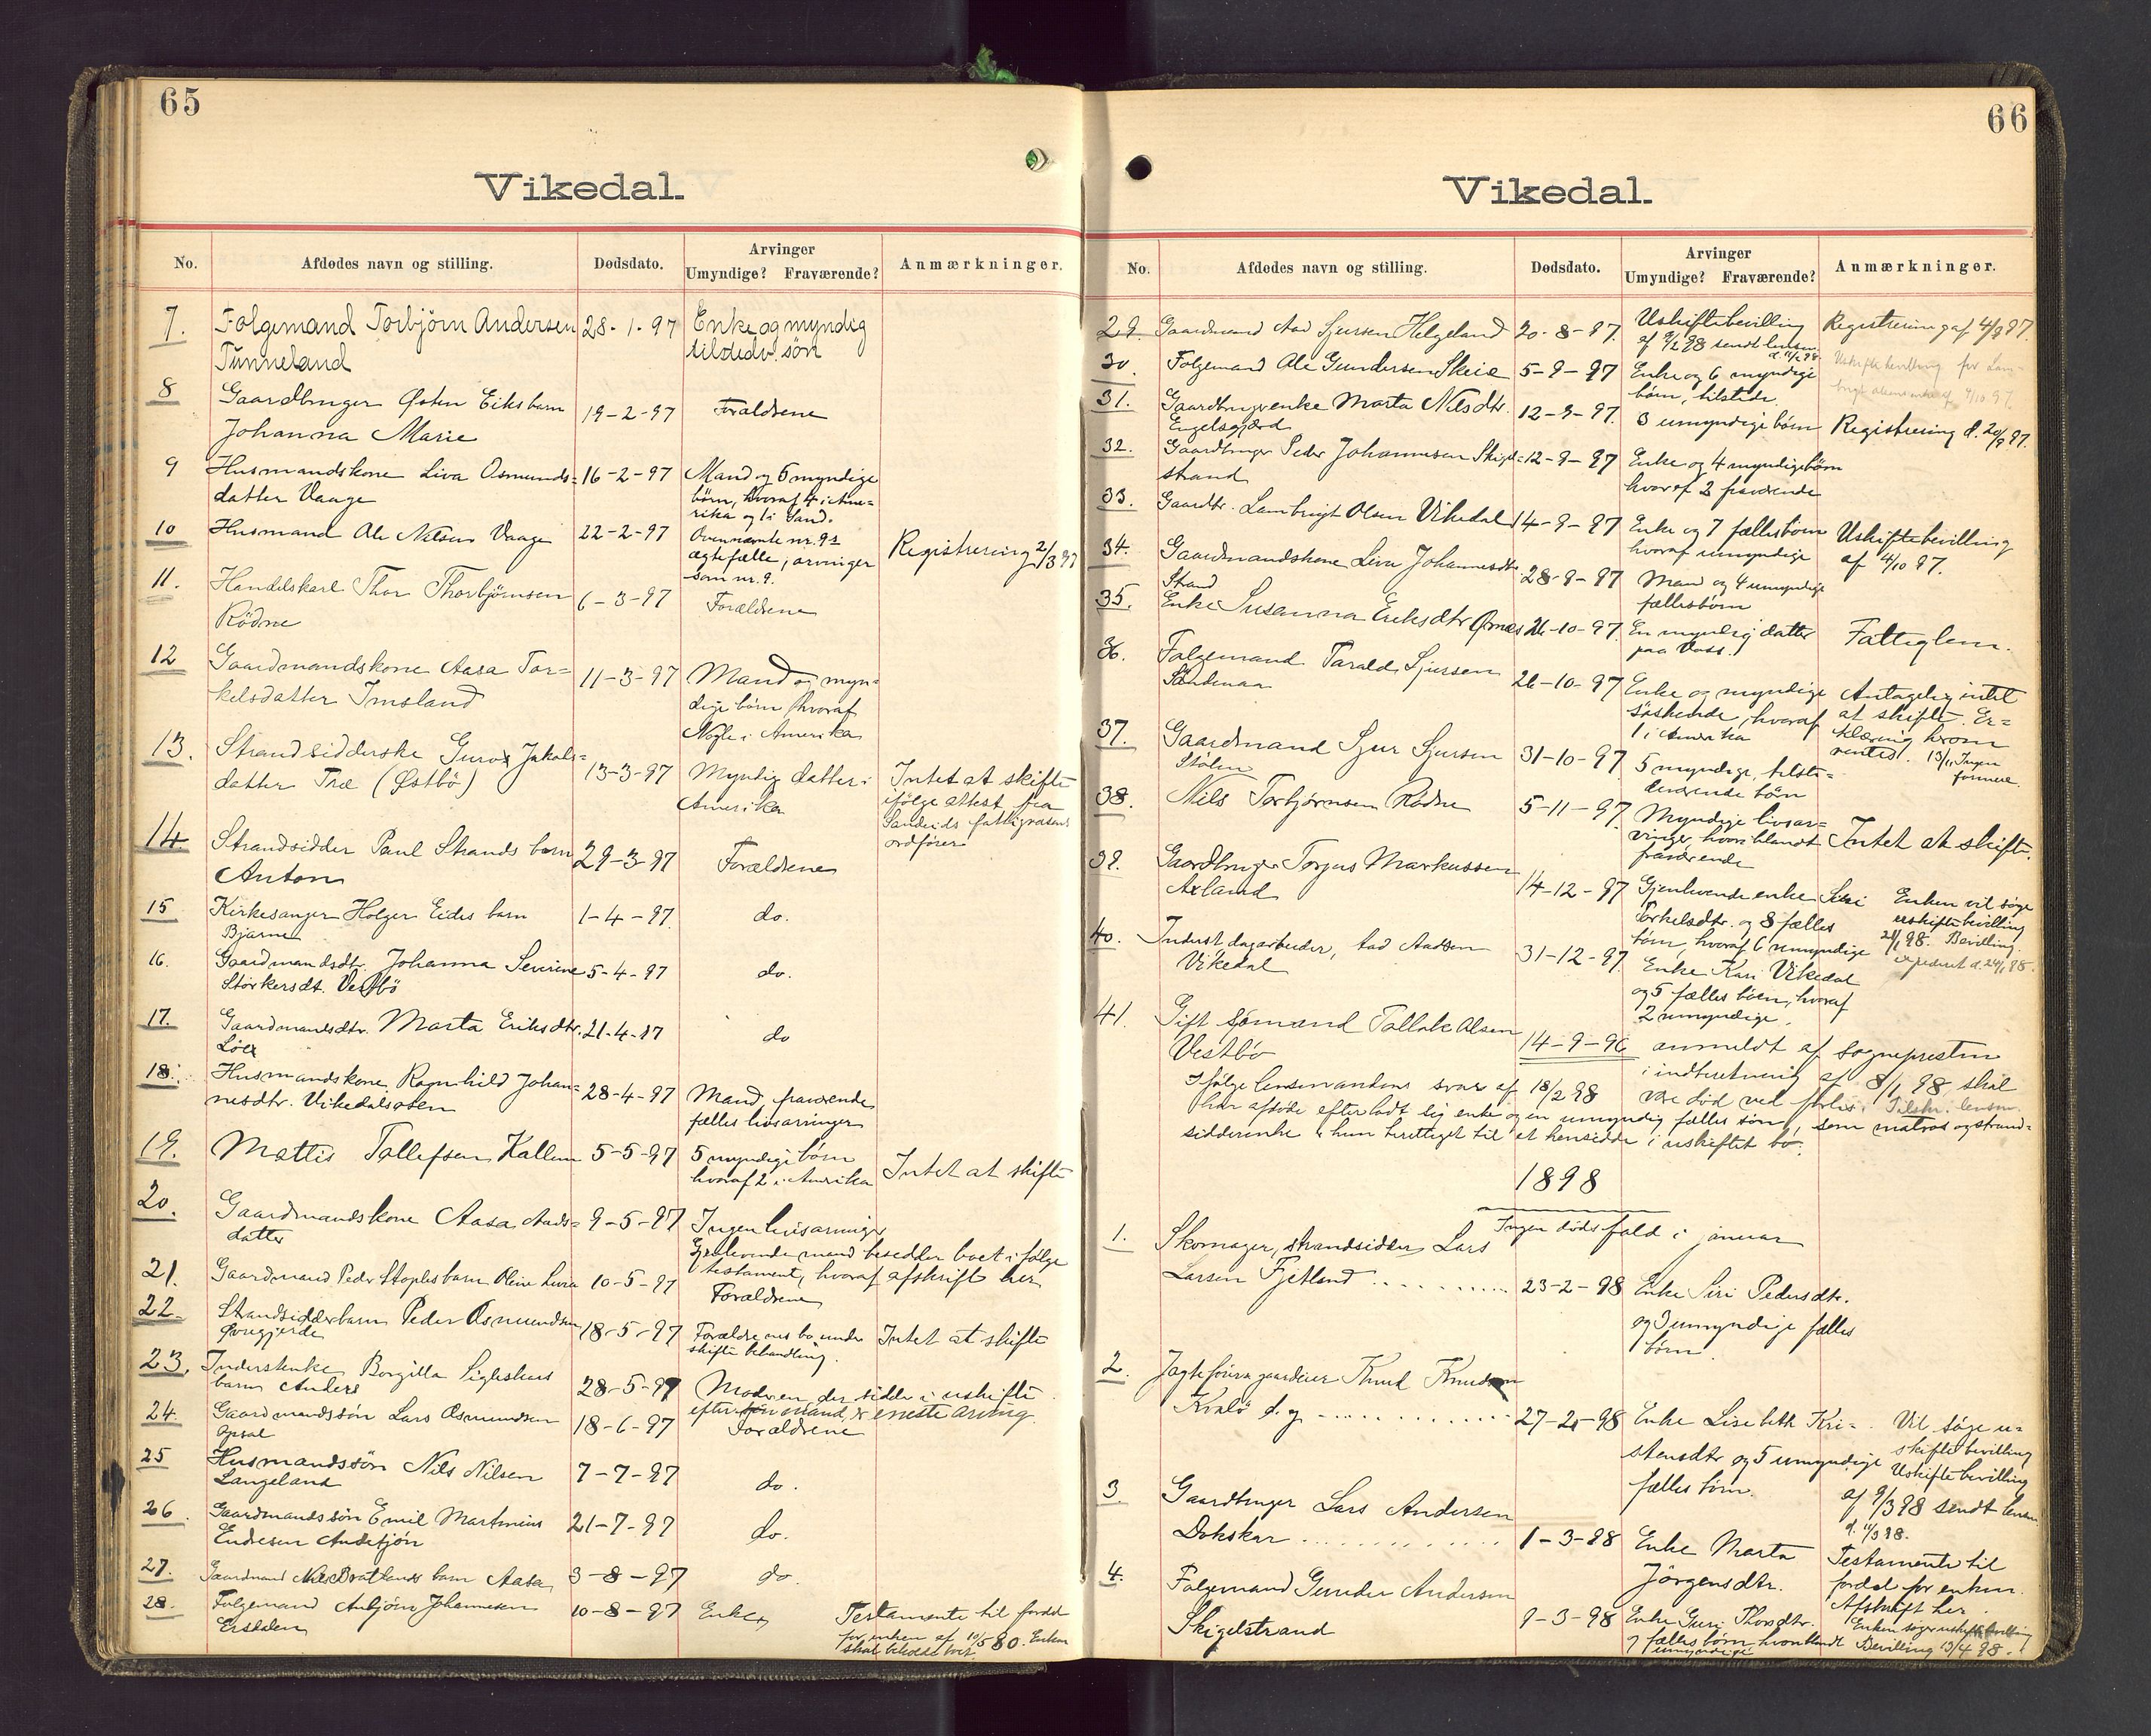 65
Vikedal.
No. Afdødes navn og stilling. Dødsdato. Arvinger Umyndige? Fraværende? Anmærkninger.
7. Folgemand Torbjörn Andersen 28-1-97 Enke og myndig
Tunneland tilstedv. sön
8 Gaardbruger Østen Eiks barn 19-2-97 Forældrene
Johanna Marie
9 Husmandskone Liva Osmunds= 16-2-97 Mand og 6 myndige
datter Vaage børn, hvoraf 4 i Ame=
rika og 1 i Sand.
10 Husmand Ole Nilsen Vaage 22-2-97 Ovennævnte nr. 9s
ægtefælle, arvinger Registrering 2/3 97
som nr. 9.
11. Handelskarl Thor Thorbjörnsen 6-3-97 Forældrene
Rödne
12 Gaardmandskone Aasa Tor= 11-3-97 Mand og myn=
kelsdatter Imsland dige børn hvoraf
Nogle i Amerika
13. Strandsidderske Guro Jakobs= 13-3-97 Myndig datter i Intet at skifte
datter Træ (Østbö) Amerika ifölge attest fra
Sandeids fattigvæsens
ordfører
14 Strandsidder Paul Strands barn 29-3-97 Forældrene
Anton
15 Kirkesanger Holger Eides barn 1-4-97 do.
Bjarne
16. Gaardmandsdtr. Johanna Severine 5-4-97 do.
Störkersdt. Vestbö
17. Gaardmandsdtr. Marta Eriksdtr. 21-4-97 do
18. Husmandskone Ragnhild Johan= 28-4-97 Mand, fraværende
nesdtr. Vikedalsosen fælles livsarvinger
19. Mattis Tollefsen Hallem 5-5-97 5 myndige børn Intet at skifte
hvoraf 2 i Amerika
20. Gaardmandskone Aasa Aads= 9-5-97 Ingen livsarvinger
datter Gjenlevende mand besidder boet i følge
testament, hvoraf afskrift her
21. Gaardmand Peder Stoples barn Oline Livia 10-5-97 Forældrene
22. Strandsidderbarn Peder Osmundsen 18-5-97 Forældrenes bo under Intet at skifte
Övregjerde skifte behandling.
23. Inderstenke Borgilla Sigleshus 28-5-97 Moderen der sidder i uskifte
barn Anders efter sin mand, er eneste arving.
24. Gaardmandssön Lars Osmundsen 18-6-97 Forældrene
Opsal
25 Husmandssön Nils Nilsen 7-7-97 do.
Langeland
26. Gaardmandssön Emil Martinius 21-7-97 do.
Endresen
27. Gaardmand Nils Bratlands barn Aasa 3-8-97 do.
28. Folgemand Asbjörn Johannesen 10-8-97 Enke Testamente til fordel
for enken af 10/5 80. Enken
skal beholde boet.
66
Vikedal.
No. Afdødes navn og stilling. Dødsdato. Arvinger Umyndige? Fraværende? Anmærkninger.
29. Gaardmand Aad Sjursen Helgeland 20-8-97. Uskiftebevilling Registrering af 4/9 97.
af 9/2 98 sendt lensm.
d. 11/2 98
30. Folgemand Ole Gundersen Skeie 5-9-97 Enke og 6 myndige Uskiftebevilling for Lam-
børn, tilstede. 4/10 97.
31. Gaardbrugerenke Marta Nilsdtr. 12-9-97. 3 umyndige børn Registrering d. 20/9 97.
Engelsgjærd
32. Gaardbruger Peder Johannesen Skigel= 12-9-97 Enke og 4 myndige børn
strand hvoraf 2 fraværende
33. Gaardbr. Lambrigt Olsen Vikedal 14-9-97 Enke og 7 fællesbørn Uskiftebevilling
hvoraf umyndige af 4/10 97.
34. Gaardmandskone Liva Johannesdtr. 28-9-97 Mand og 4 umyndige
Strand fællesbørn
35. Enke Susanna Eriksdtr Ørnes 26-10-97. En myndig datter Fattiglem.
paa Voss.
36. Folgemand Tarald Sjursen 26-10-97 Enke og myndige Antagelig intet
Söndenaa söskende, hvoraf at skifte. Er=
1 i Amerika klæring herom
ventes. 13/11 Ingen
formue.
37. Gaardmand Sjur Sjursen 31-10-97 5 myndige, tilste=
Stölen deværende börn
38. Nils Torbjørnsen Rödne 5-11-97. Myndige livsar=
vinger, hvoriblandt Intet at skifte.
fraværende
39. Gaardbruger Torgus Markussen 14-12-97 Gjenlevende enke Siri Enken vil søge
Axland Torkelsdtr. og 8 fælles uskiftebevilling
børn, hvoraf 6 umyndige 21/1 98. Bevilling
expederet d. 24/1 98.
40. Inderst, dagarbeider, Aad Aadsen 31-12-97. Enke Kari Vikedal
Vikedal og 5 fælles børn, hvoraf
2 umyndige.
41. Gift sømand Tollak Olsen 14-9-96 anmeldt af sognepresten
Vestbö i indberetning af 8/1 98 skal
være død ved forlis. Tilskr. lensm.
Ifølge lensmandens svar af 18/2 98
har afdøde efterladt sig enke og en umyndig fælles søn, som matros og strand=
sidderenke er hun berettiget til at hensidde i uskiftet bo.
1898
Ingen dødsfald i januar
1. Skomager, strandsidder Lars
Larsen Fjetland ........ 23-2-98 Enke Siri Pedersdtr.
og 3 umyndige fælles
børn.
2. Jagtefører, gaardeier Knud Knudsen
Kralö d.y. ............ 27-2-98 Enke Lisebeth Kri= Vil søge u=
stensdtr og 5 umyndige skiftebevilling
fælles børn. Uskiftebevilling
af 9/3 98 sendt lensm.
d. 11/3 98.
3. Gaardbruger Lars Andersen
Dokskar ............ 1-3-98 Enke Marta Testamente til
Jörgensdtr. fordel for enken.
Afskrift her.
4. Folgemand Gunder Andersen
Skigelstrand 9-3-98 Enke Guri Thorsdtr. Enken søger uskiftebevilling
7 fælles børn, hvoriblandt Bevilling 13/4 98.
umyndige